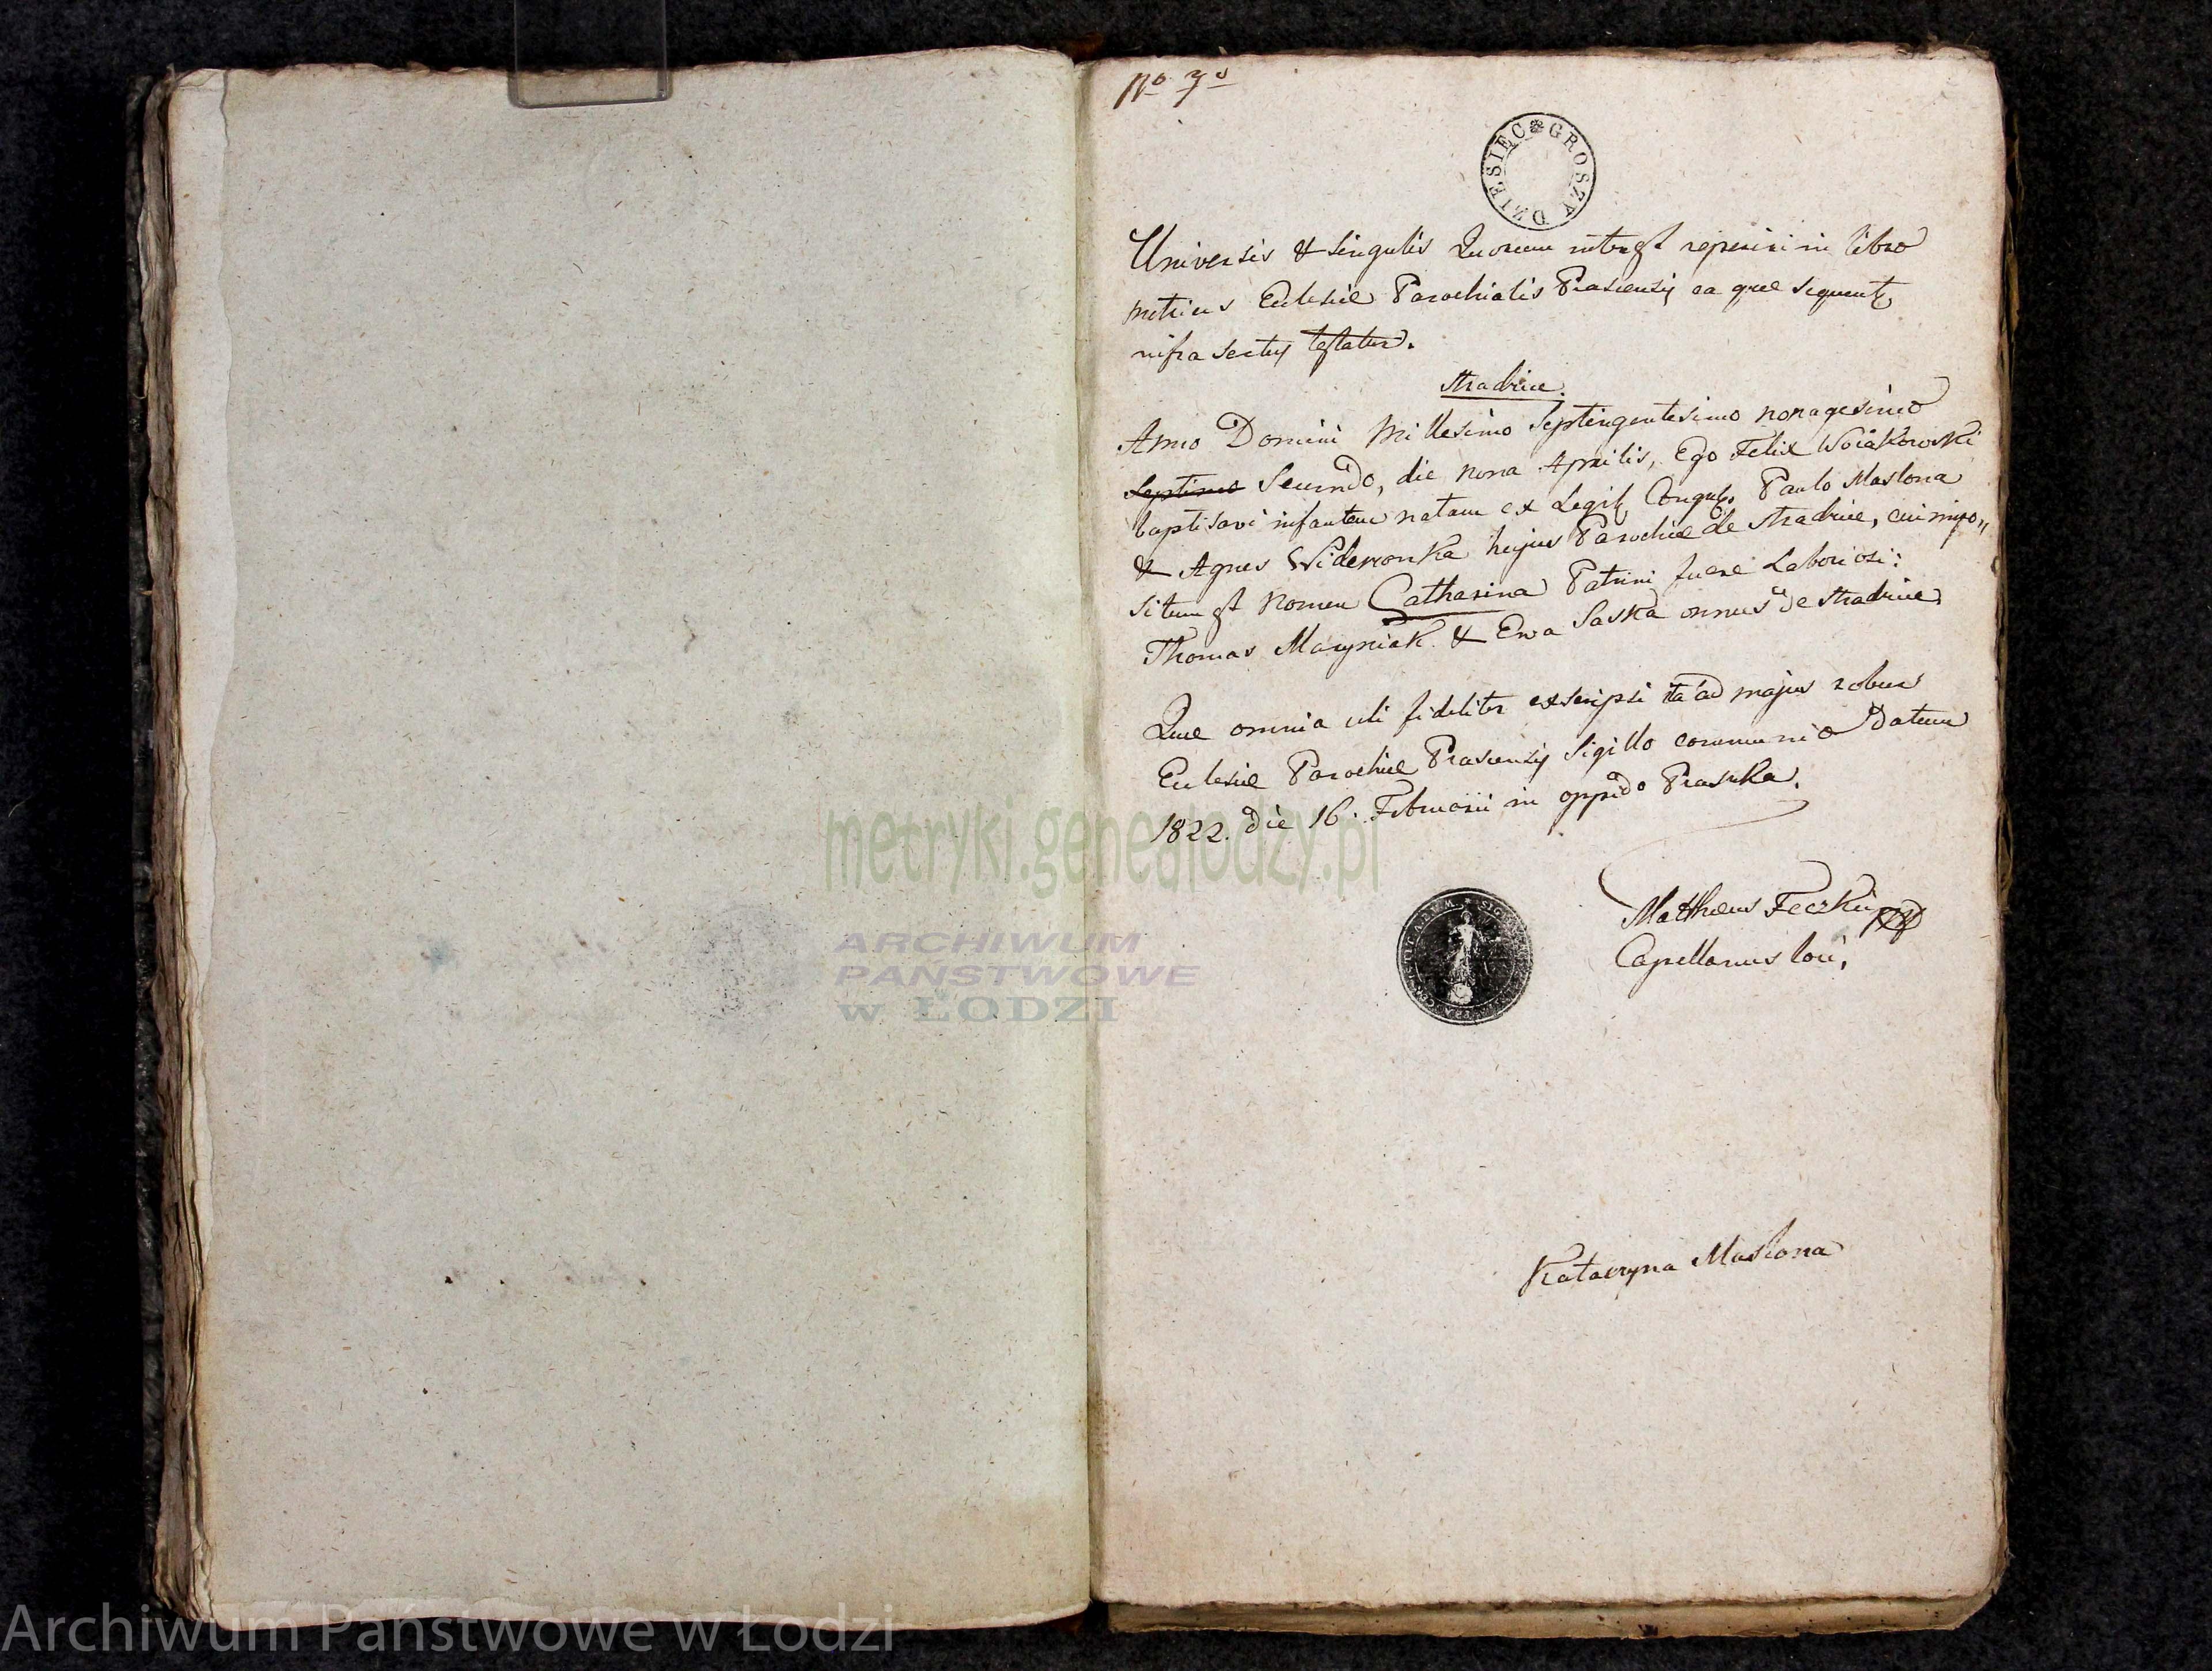 No 7o
DZIESIĘC GROSZY
Universis & singulis Quorum interest reperiri in libro
metrices Eclesiæ Parochialis Prascensis ea quæ sequentr
infra sectus testatur.
Stradzice.
Anno Domini Millesimo Septingentesimo nonagesimo
Septimo Secundo, die nona Aprilis, Ego Felix Woiakowski
baptisavi infantem natam ex Legit. Conjugb. Paulo Maslona
& Agnes Widerzonka hujus Parochiæ de Stradzice, cui impo„
situm est Nomen Catharina Patrini fuere Laboriosi:
Thomas Maryniak & Ewa Saska omnes de Stradzice.
Quæ omnia uti fideliter exscripsi ita ad majus robur
Eclesiæ Parochiæ Prascensis Sigillo communio Datum
1822. Die 16. Februarii in oppido Praszka.
Matthæus Feczkie
Capellanus loci,
Katarzyna Maslona
metryki.genealodzy.pl
ARCHIWUM
PAŃSTWOWE
w ŁODZI
Archiwum Państwowe w Łodzi